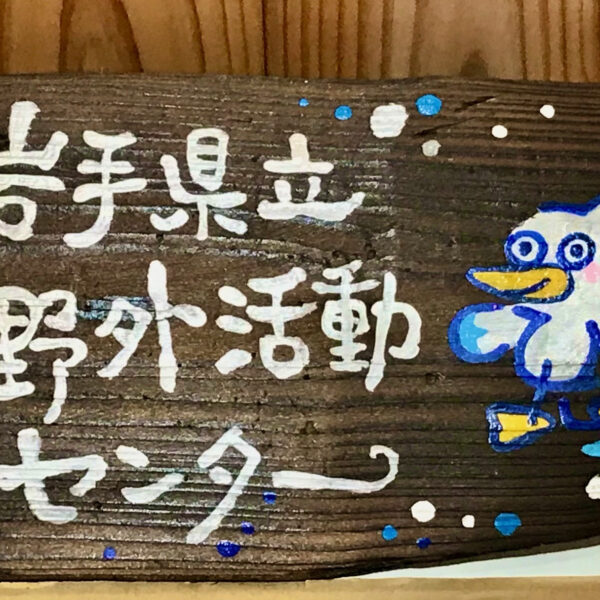 岩手県立
野外活動
センター